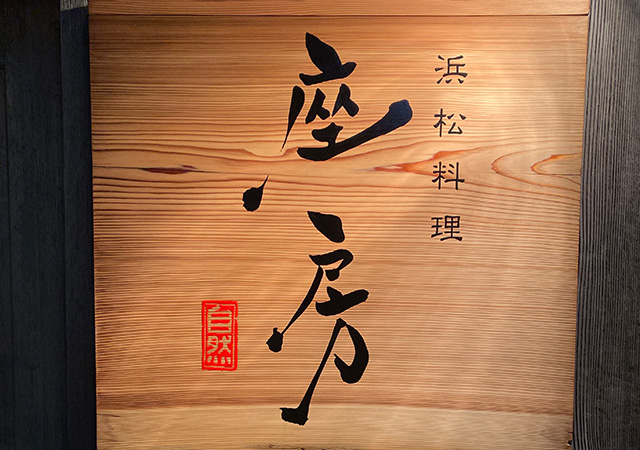 浜松料理
座房
自然